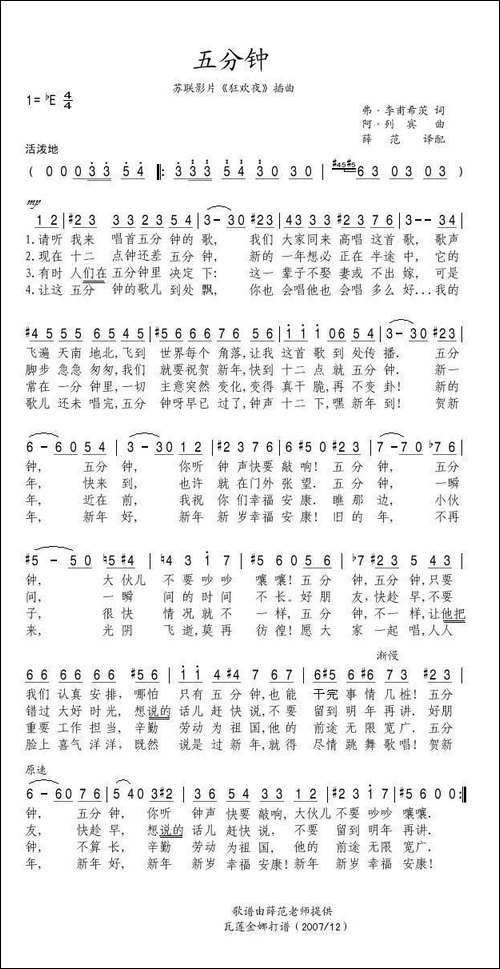 五分钟
苏联影片《狂欢夜》插曲
1= ♭E 4/4
弗·李甫希茨 词
阿·列 宾 曲
薛 范 译配
活泼地
( 0 0 0 3 3 5 4 ‖: 3 3 3 5 4 3 0 5 0 | #4 5 #5 6 3 0 3 0 3 )
mp
1 2 | #2 3 3 3 2 3 5 4 | 3 - 3 0 #2 3 | 4 3 3 3 #2 3 5 4 | 3 - 3 0 3 3
1.请听 我来 唱首五分 钟的 歌, 我们 大家同来 高唱 这首 歌, 歌声
2.现在 十二 点钟还差 五分 钟, 新的 一年想必 正在 半途 中, 它的
3.有时 人们在 五分钟里 决定 下: 这一 辈子不娶 妻或 不出 嫁, 可是
4.让这 五分 钟的歌儿 到处 飘, 你也 会唱他也 会唱 多么 好... 我的
#4 5 5 5 6 5 4 5 | #5 6 6 6 7 6 5 6 | 1 1 1 1 0 6 5 4 | 3 - 3 0 #2 3
飞遍 天南 地北, 飞到 世界每个 角落, 让我 这首 歌到 处传 播. 五分
脚步 急急 匆匆, 我们 就要祝贺 新年, 快到 十二 点就 五分 钟. 新一
常在 一分 钟里, 一切 主意突然 变化, 变得 真干 脆, 再不 变卦! 新的
歌儿 还未 唱完, 五分 钟呀早已 过了, 钟声 十二 下, 嘿新 年到! 贺新
6 - 6 0 5 4 | 3 - 3 0 1 2 | #2 3 1 7 6 | 6 #5 0 #2 3 | 7 - 7 0 ♭7 6
钟, 五分 钟, 你听 钟 声快要 敲响! 五分 钟, 五分
年, 快来 到, 也许 就 在门外 张望. 五分 钟, 一瞬
年, 近在 前, 我祝 你 们幸福 安康. 瞧那 边, 小伙
年, 新年 好, 新年 新 岁幸福 安康! 旧的 年, 不再
#5 - 5 0 ♮5 #4 | ♮4 3 1 7 | #5 6 0 6 1 | ♭7 #2 3 5 4 2 3
钟, 大伙儿 不 要 吵吵 嚷嚷! 五分 钟, 五分 钟, 只要
间, 一瞬 间的 时间 不长. 好朋 友, 快趁 早, 不要
子, 很快 情况 就不 一样, 五分 钟, 不一 样, 让他把
来, 光阴 飞逝, 莫再 彷徨! 愿大 家一 起唱, 人人
渐慢
6 6 6 6 6 6 #5 6 | 1 1 #4 #4 7 0 6 7 | 3 3 5 4 3 2 1 2 | #2 3 0 5 4
我们 认真 安排, 哪怕 只有 五分 钟, 也能 干完 事情 几桩! 五分
错过 大好 时光, 想说的 话儿 赶快 说, 不要 留到 明年 再讲. 好朋
重要 工作 担当, 辛勤 劳动 为祖 国, 他的 前途 无限 宽广. 五分
脸上 喜气 洋洋, 既然 说是 过新 年, 就得 尽情 跳舞 歌唱! 贺新
原速
6 - 6 0 7 6 | 5 4 0 3 #2 | 3 6 1 2 3 3 0 1 2 | #2 3 1 7 | #5 6 0 0 :‖
钟, 五分 钟, 你听 钟声 快要 敲响, 大伙儿 不要 吵吵 嚷嚷.
友, 快趁 早, 想说的 话儿 赶快 说, 不要 留到 明年 再讲.
钟, 不算 长, 辛勤 劳动 为祖 国, 他的 前途 无限 宽广.
年, 新年 好, 新年 新岁 幸福 安康! 新年 新岁 幸福 安康!
歌谱由薛范老师提供
瓦莲金娜打谱 (2007/12)